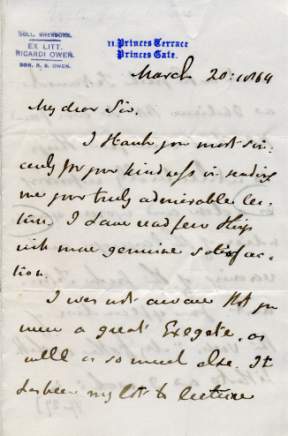 COLL. SHERBORN.
EX LITT.
RICARDI OWEN.
DON. R. S. OWEN.
11. Princes Terrace
Princes Gate.
March 20: 1864
My dear Sir.
I thank you most sin-
cerely for your kindness in sending
me your truly admirable lec-
ture. I have read few things
with more genuine satisfac-
tion.
I was not aware that you
were a great Exegete, as
well as so much else. It
has been my lot to lecture